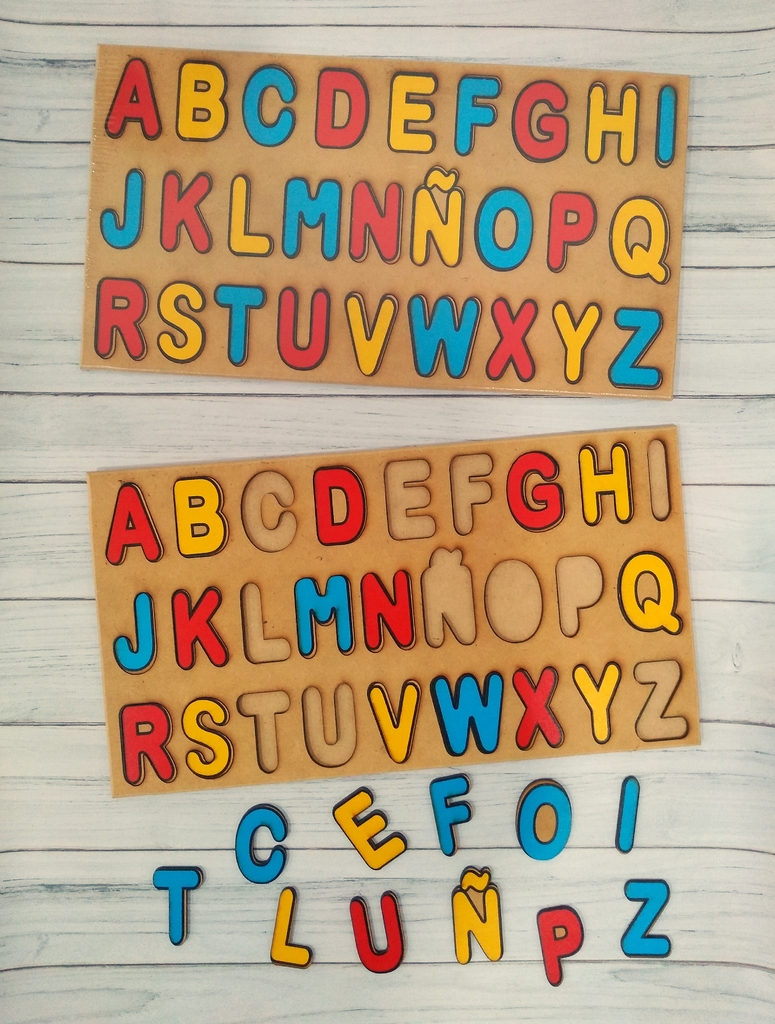 ABCDEFGHI
JKLMNÑOPQ
RSTUVWXYZ
ABCDEFGHI
JKLMNÑOPQ
RSTUVWXYZ
C E F O I
T L U Ñ P Z